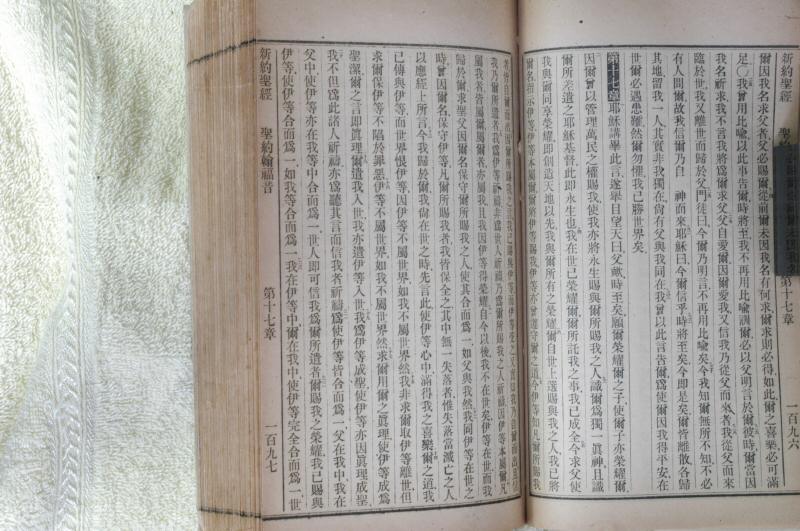 新約聖經
第十七章
一百九六
爾因我名求父者父必賜爾從前爾未因我名有何求爾求則必得如此爾之喜樂必可滿
足○我曾用比喩以此事告爾時將至我不再用比喩訓爾必以父明言於爾彼時爾當因
我名祈求我不言我將爲爾求父父自愛爾因爾愛我又信我乃從父而來者我從父而來
臨於世我又離世而歸於父門徒曰今爾乃明言不再用比喩矣今我知爾無所不知不必
有人問爾故我信爾乃自 神而來耶穌曰今爾信乎時將至矣今即是矣爾皆離散各歸
其地留我一人其實非我獨在尙有父與我同在我曾以此言告爾爲使爾因我得平安在
世爾必遇患難然爾勿懼我已勝世界矣
第十七章耶穌講畢此言遂舉目望天曰父歟時至矣願爾榮耀爾之子使爾子亦榮耀爾
因爾曾以管理萬民之權賜我使我亦將永生賜與爾所賜我之人識爾爲獨一眞神且識
爾所差遣之耶穌基督此即永生也我在世已榮耀爾爾所託我之事我已成全今求父使
我與爾同享榮耀即創造天地以先我與爾所有之榮耀爾自世上選與我之人我已將
爾名指示伊等伊等本屬爾爾將伊等賜我伊等亦曾遵守爾之道今伊等知凡爾所賜我
我乃爾所遣者我爲伊等祈禱非爲世人祈禱乃爲爾所賜我之人祈禱因伊等本屬爾凡
屬我者皆屬爾屬爾者亦屬我且我因伊等得榮耀自今以後我不在世矣伊等在世而我
歸於爾求聖父因爾名保守爾所賜我之人使其合而爲一如父與我然我同伊等在世之
時曾因爾名保守伊等凡爾所賜我者我皆保全之其中無一失落者惟失落當滅亡之人
以應經上所言今我歸於爾我尙在世之時先言此使伊等心中滿得我之喜樂爾之道我
已傳與伊等而世界恨伊等因伊等不屬世界如我不屬世界然我非求爾取伊等離世但
求爾保伊等不陷於罪惡伊等不屬世界如我不屬世界然求爾用爾之眞理使伊等成爲
聖潔爾之言即眞理爾遣我入世我亦遣伊等入世我爲伊等成聖使伊等亦因眞理成聖
我不但爲此諸人祈禱亦爲聽其言而信我者祈禱爲使伊等皆合而爲一父在我中我在
父中使伊等亦在我等中合而爲一世人即可信我爲爾所遣者爾賜我之榮耀我已賜與
伊等使伊等合而爲一如我等合而爲一我在伊等中爾在我中使伊等完全合而爲一世
新約聖經
聖約翰福音
第十七章
一百九七